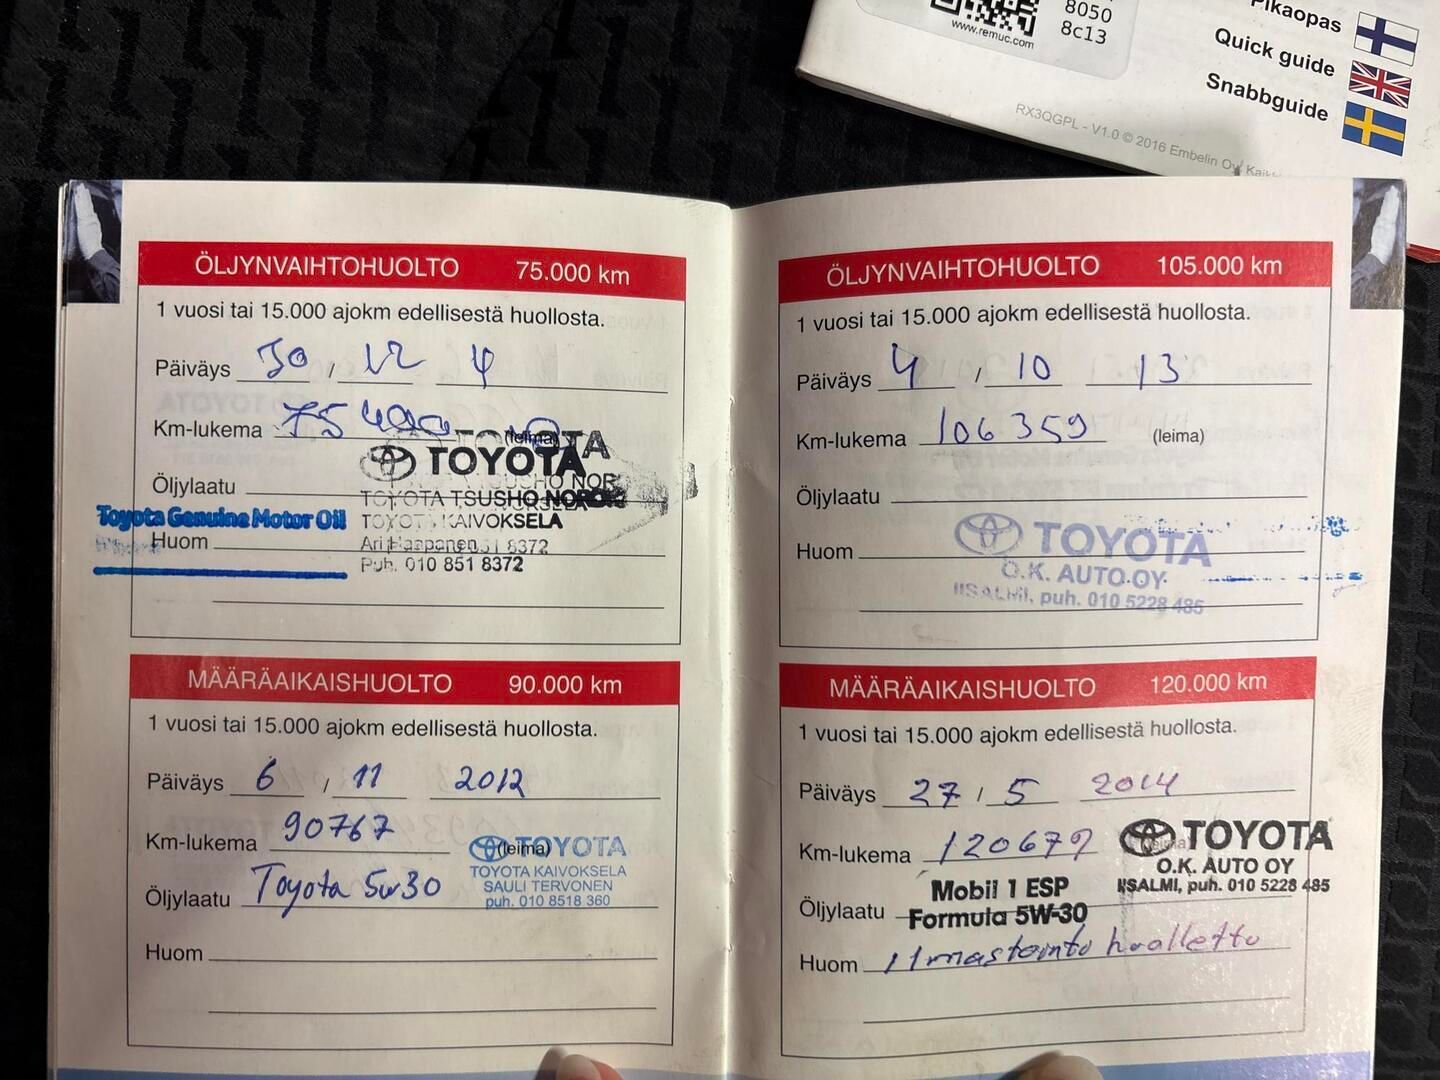 8050
8c13
www.remuc.com
Pikaopas
Quick guide
Snabbguide
RX3QGPL - V1.0 © 2016 Embelin Oy
ÖLJYNVAIHTOHUOLTO 75.000 km
1 vuosi tai 15.000 ajokm edellisestä huollosta.
Päiväys 30 / 12
Km-lukema 75
(leima)
TOYOTA
Öljylaatu
TOYOTA TSUSHO
Toyota Genuine Motor Oil
TOYOTA KAIVOKSELA
Huom
Puh. 010 851 8372
MÄÄRÄAIKAISHUOLTO 90.000 km
1 vuosi tai 15.000 ajokm edellisestä huollosta.
Päiväys 6 / 11 2012
Km-lukema 90767
(leima)
TOYOTA
TOYOTA KAIVOKSELA
SAULI TERVONEN
puh. 010 8518 360
Öljylaatu Toyota 5w30
Huom
ÖLJYNVAIHTOHUOLTO 105.000 km
1 vuosi tai 15.000 ajokm edellisestä huollosta.
Päiväys 4 / 10 13
Km-lukema 106359 (leima)
Öljylaatu
Huom
TOYOTA
O.K. AUTO OY
IISALMI, puh. 010 5228 485
MÄÄRÄAIKAISHUOLTO 120.000 km
1 vuosi tai 15.000 ajokm edellisestä huollosta.
Päiväys 27 / 5 2014
Km-lukema 120679
TOYOTA
O.K. AUTO OY
IISALMI, puh. 010 5228 485
Öljylaatu Mobil 1 ESP
Formula 5W-30
Huom Ilmastointi huollettu